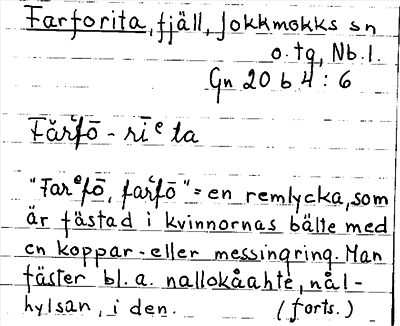 Farforita, fjäll, Jokkmokks sn
o. tg, Nb. l.
Gn 20 b 4 : 6
Fárᵉfō - rīᵉta
"Farᵉfō, farᵉfō" = en remlycka, som
är fästad i kvinnornas bälte med
en koppar- eller messingring. Man
fäster bl. a. nallokåahte, nål-
hylsan, i den. (forts.)